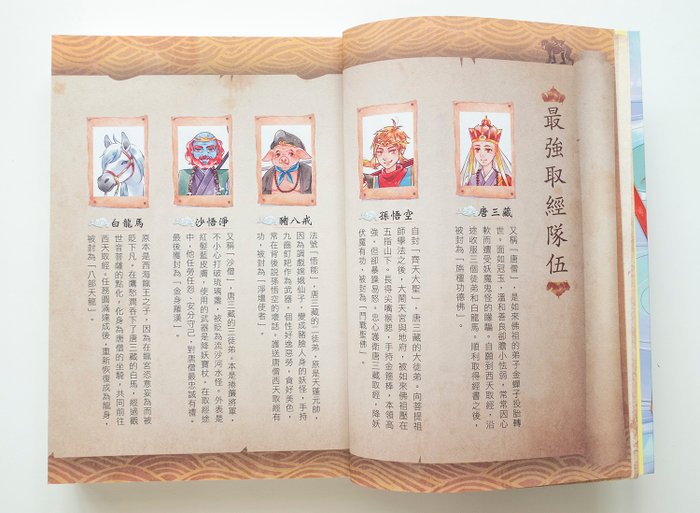 最強取經隊伍
唐三藏
又稱「唐僧」，是如來佛祖的弟子金蟬子投胎轉
世。面如冠玉，溫和善良卻膽小怯弱，常常因心
軟而遭受妖魔鬼怪的矇騙。自願到西天取經，沿
途收服三個徒弟和白龍馬。順利取得經書之後，
被封為「旃檀功德佛」。
孫悟空
自封「齊天大聖」，唐三藏的大徒弟。向菩提祖
師學法之後，大鬧天宮與地府，被如來佛祖壓在
五指山下。長得尖嘴猴腮，手持金箍棒，本領高
強，但卻暴躁易怒。忠心護衛唐三藏取經，降妖
伏魔有功，被封為「鬥戰聖佛」。
豬八戒
法號「悟能」，唐三藏的二徒弟。原是天蓬元帥，
因為調戲嫦娥仙子，變成豬臉人身的妖怪，手持
九齒釘耙作為武器。個性好逸惡勞，貪好美色，
常在背後說孫悟空的壞話。護送唐僧西天取經有
功，被封為「淨壇使者」。
沙悟淨
又稱「沙僧」，唐三藏的三徒弟。本是捲簾將軍，
不小心打破琉璃盞，被貶為流沙河水怪。外表是
紅髮藍皮膚，使用的武器是降妖寶杖。在取經途
中，他任勞任怨、安分守己，對唐僧最忠誠有禮。
最後獲封為「金身羅漢」。
白龍馬
原本是西海龍王之子，因為在龍宮恣意妄為而被
貶下凡。在鷹愁澗吞下了唐三藏的白馬，經過觀
世音菩薩的點化，化身為唐僧的坐騎，共同前往
西天取經。任務圓滿達成後，重新恢復成為龍身，
被封為「八部天龍」。